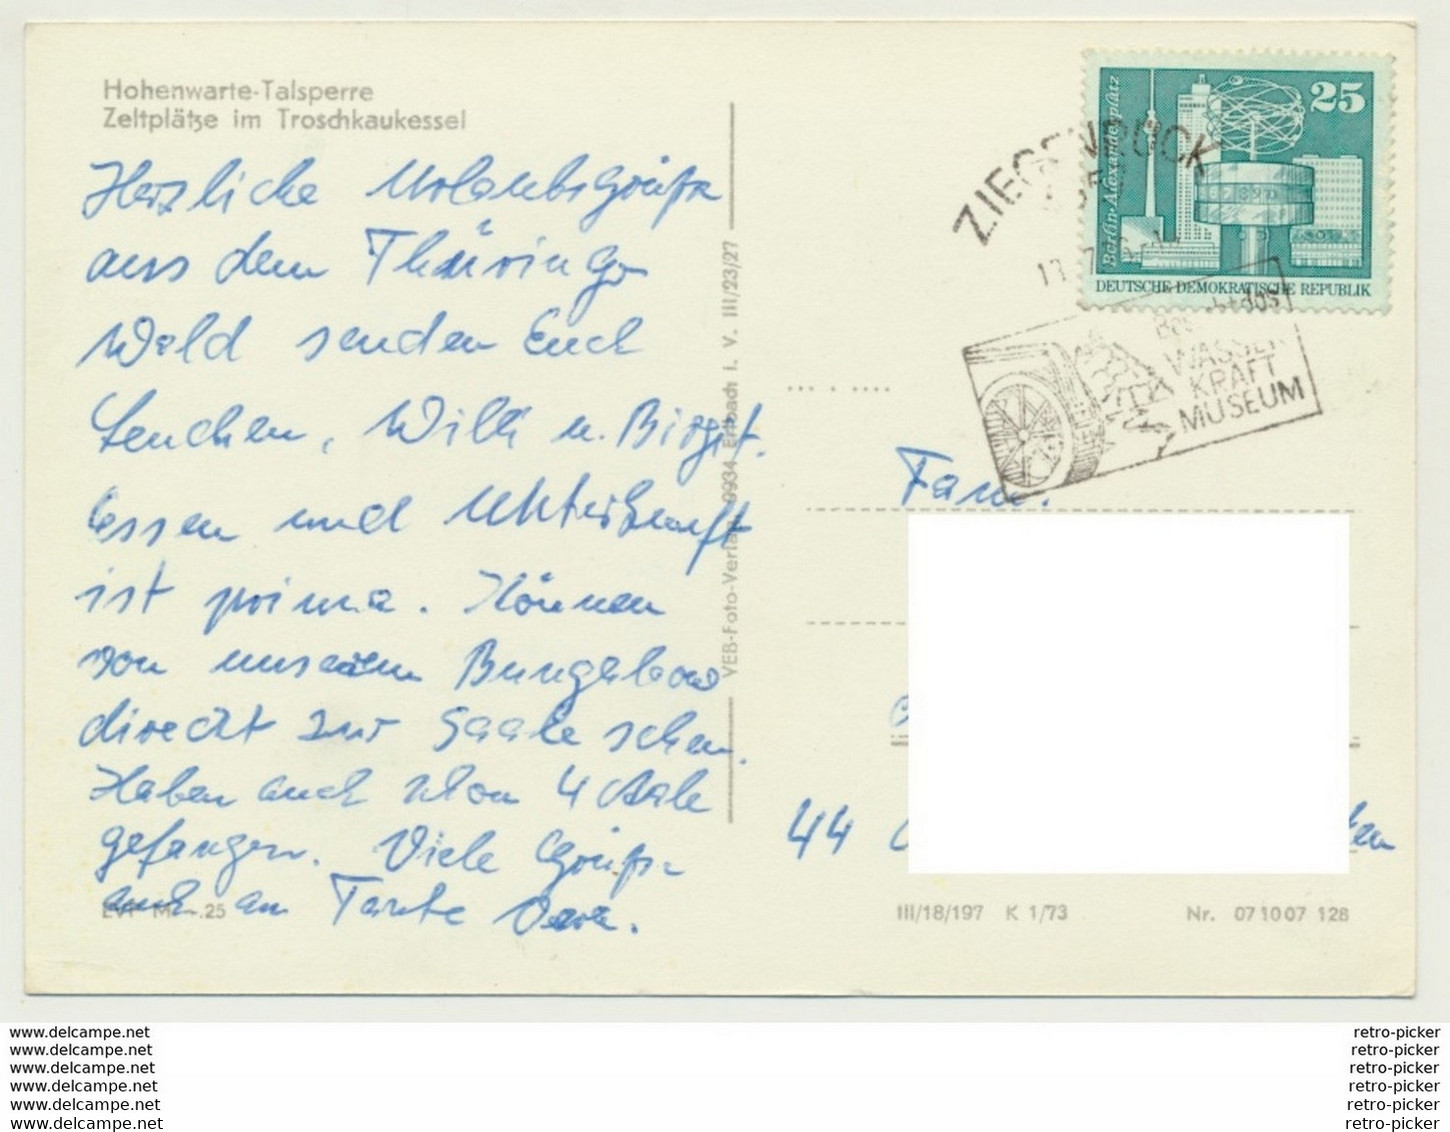 Hohenwarte-Talsperre
Zeltplätze im Troschkaukessel
Herzliche Urlaubsgrüße
aus dem Thüringer
Wald senden Euch
Lenchen, Willi u. Birgit.
Essen und Unterkunft
ist prima. Können
von unserem Bungalow
direckt zur Saale sehen.
Haben auch schon 4 Aale
gefangen. Viele Grüße
auch an Tante
25
VEB-Foto-Verlag 9934 Erlbach i. V. III/23/27
ZIEGENRÜCK
25
Berlin·Alexanderplatz
DEUTSCHE DEMOKRATISCHE REPUBLIK
WASSER
KRAFT
MUSEUM
Fam.
44
III/18/197 K 1/73
Nr. 07 10 07 128
www.delcampe.net
www.delcampe.net
www.delcampe.net
www.delcampe.net
www.delcampe.net
www.delcampe.net
retro-picker
retro-picker
retro-picker
retro-picker
retro-picker
retro-picker